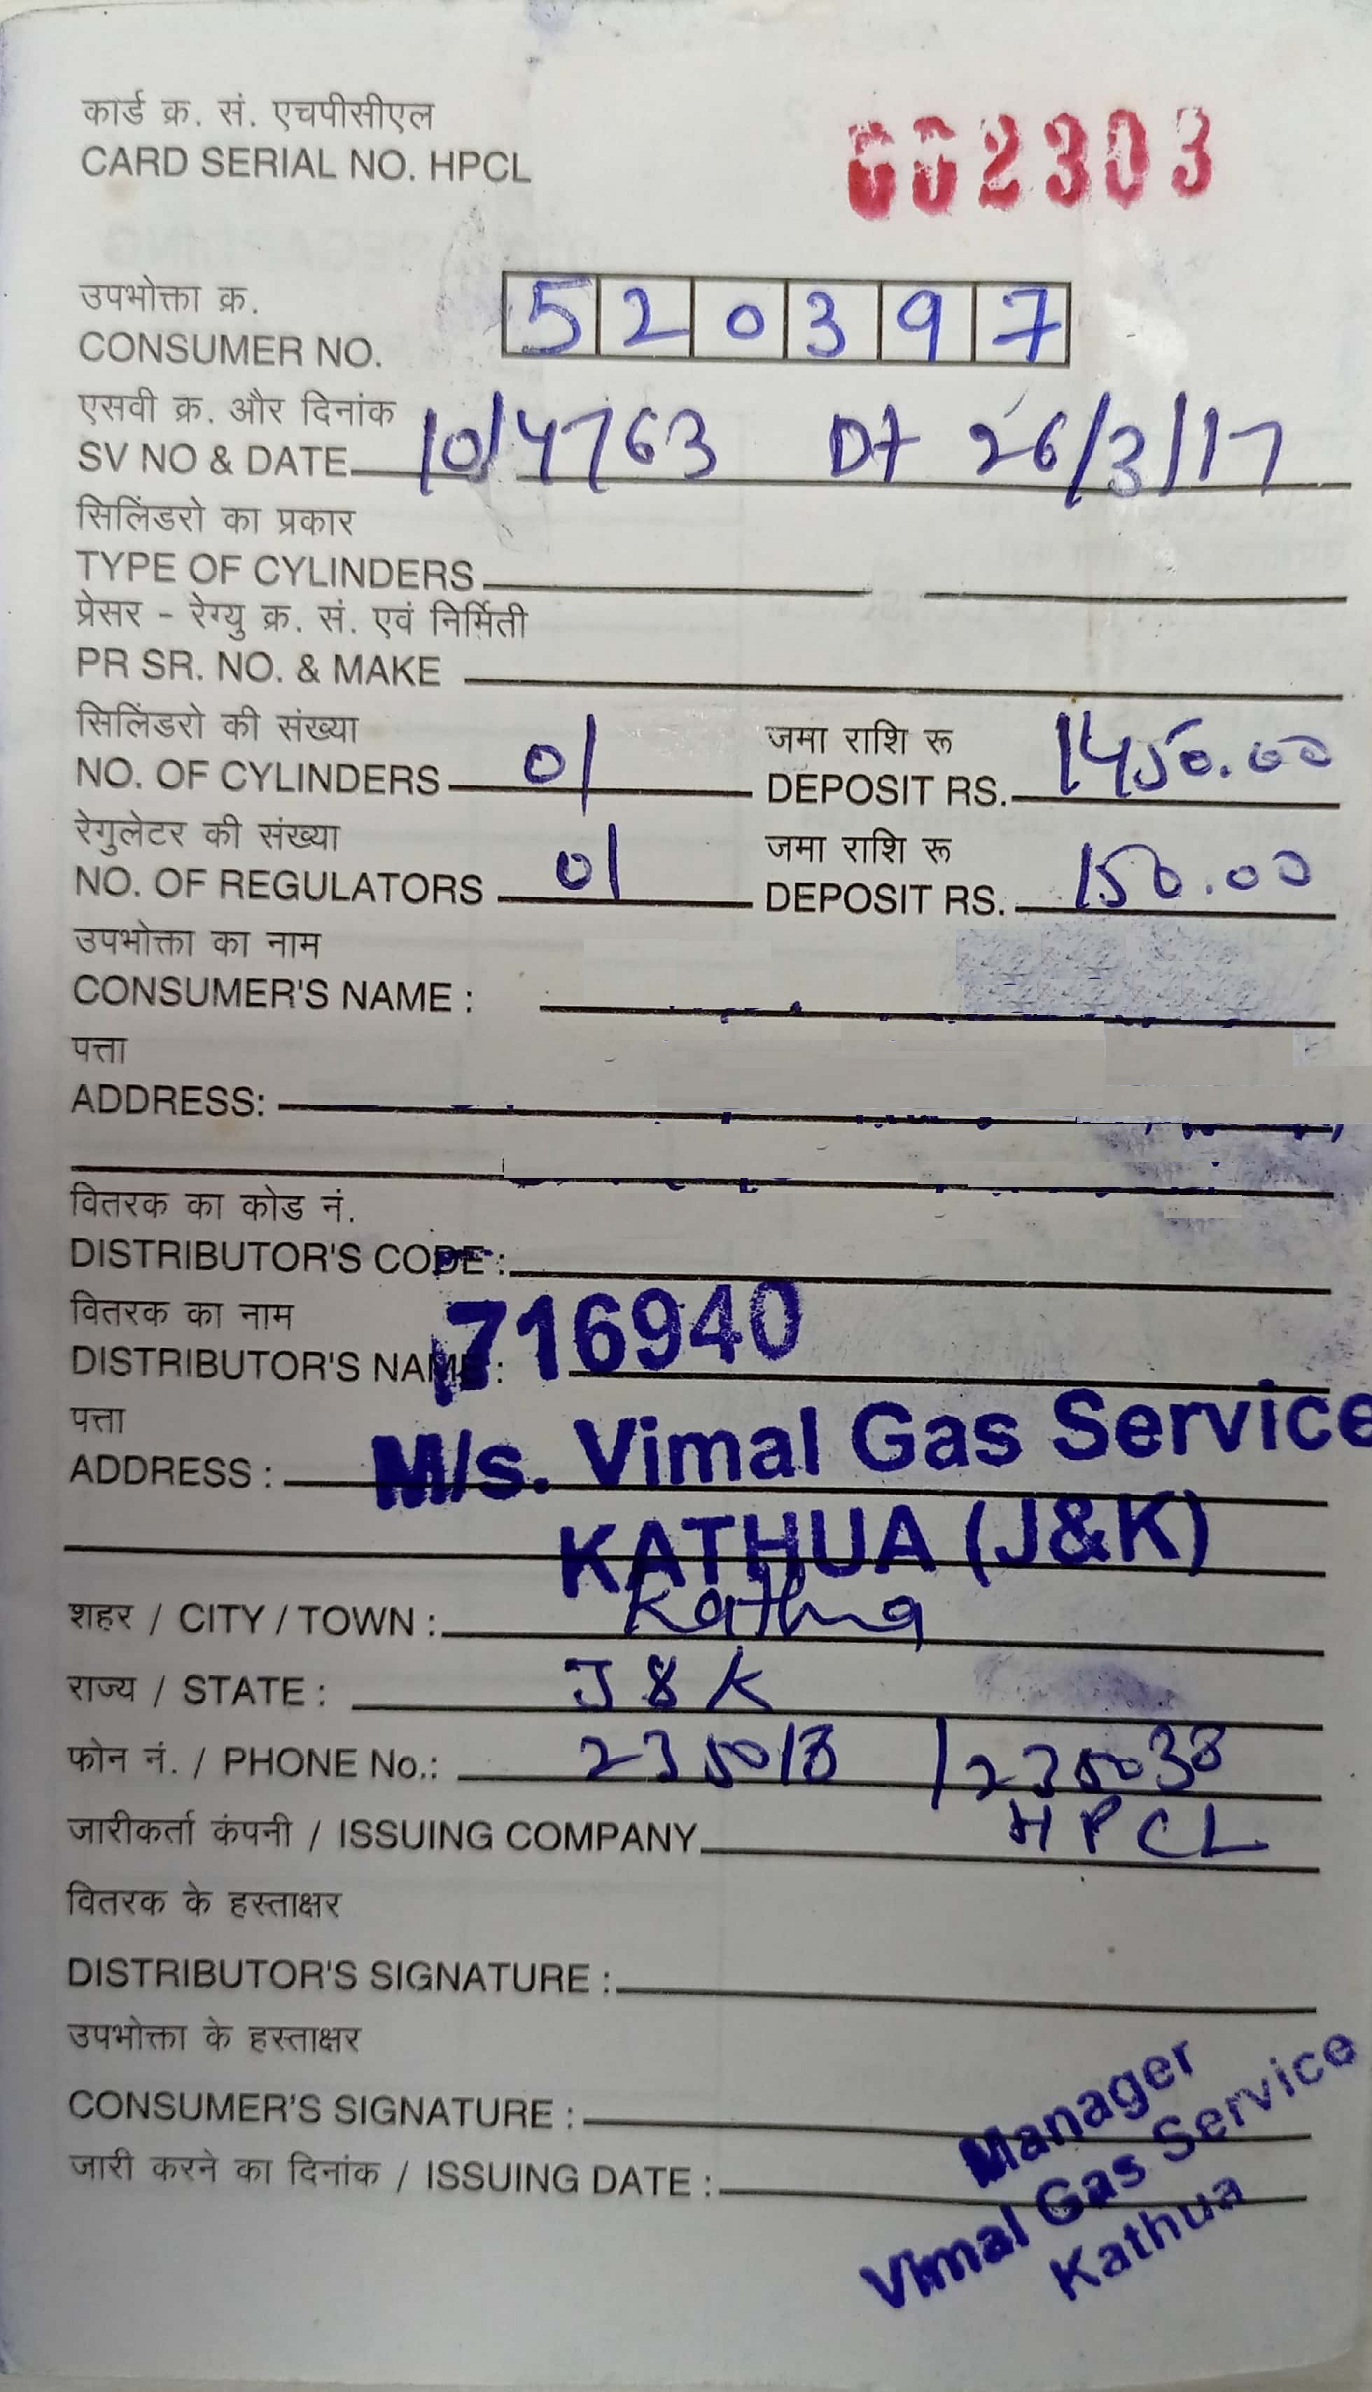 कार्ड क्र. सं. एचपीसीएल
CARD SERIAL NO. HPCL 002303
उपभोक्ता क्र.
CONSUMER NO. 520397
एसवी क्र. और दिनांक
SV NO & DATE 10/4763 Dt 26/3/17
सिलिंडरो का प्रकार
TYPE OF CYLINDERS
प्रेसर - रेग्यु क्र. सं. एवं निर्मिती
PR SR. NO. & MAKE
सिलिंडरो की संख्या जमा राशि रू
NO. OF CYLINDERS 01 DEPOSIT RS. 1450.00
रेगुलेटर की संख्या जमा राशि रू
NO. OF REGULATORS 01 DEPOSIT RS. 150.00
उपभोक्ता का नाम
CONSUMER'S NAME :
पत्ता
ADDRESS:
वितरक का कोड नं.
DISTRIBUTOR'S CODE :
वितरक का नाम
DISTRIBUTOR'S NAME : 716940
पत्ता
ADDRESS : M/s. Vimal Gas Service
KATHUA (J&K)
शहर / CITY / TOWN : Kathua
राज्य / STATE : J & K
फोन नं. / PHONE No.: 235018 / 235038
जारीकर्ता कंपनी / ISSUING COMPANY HPCL
वितरक के हस्ताक्षर
DISTRIBUTOR'S SIGNATURE :
उपभोक्ता के हस्ताक्षर
CONSUMER'S SIGNATURE :
जारी करने का दिनांक / ISSUING DATE :
Manager
Vimal Gas Service
Kathua